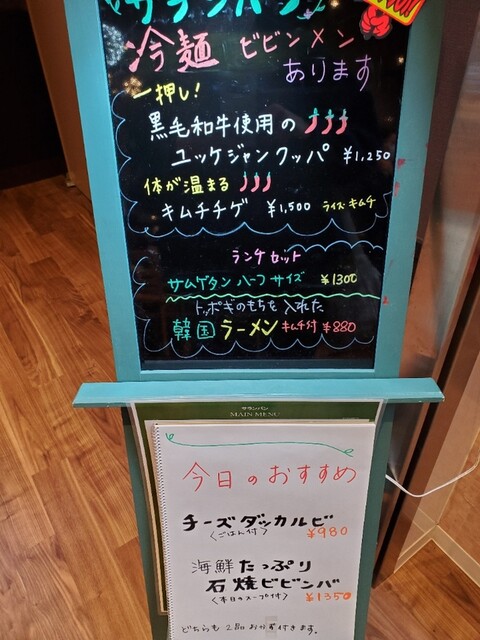 サランバン
冷麺 ビビンメン
あります
一押し!
黒毛和牛使用の
ユッケジャンクッパ ¥1,250
体が温まる
キムチチゲ ¥1,500 ライス・キムチ
ランチセット
サムゲタン ハーフサイズ ¥1300
トッポギのもちを入れた
韓国ラーメン キムチ付 ¥880
サランバン
MAIN MENU
今日のおすすめ
チーズダッカルビ
(ごはん付) ¥980
海鮮たっぷり
石焼ビビンバ
(本日のスープ付) ¥1350
どちらも2品おかず付きます。